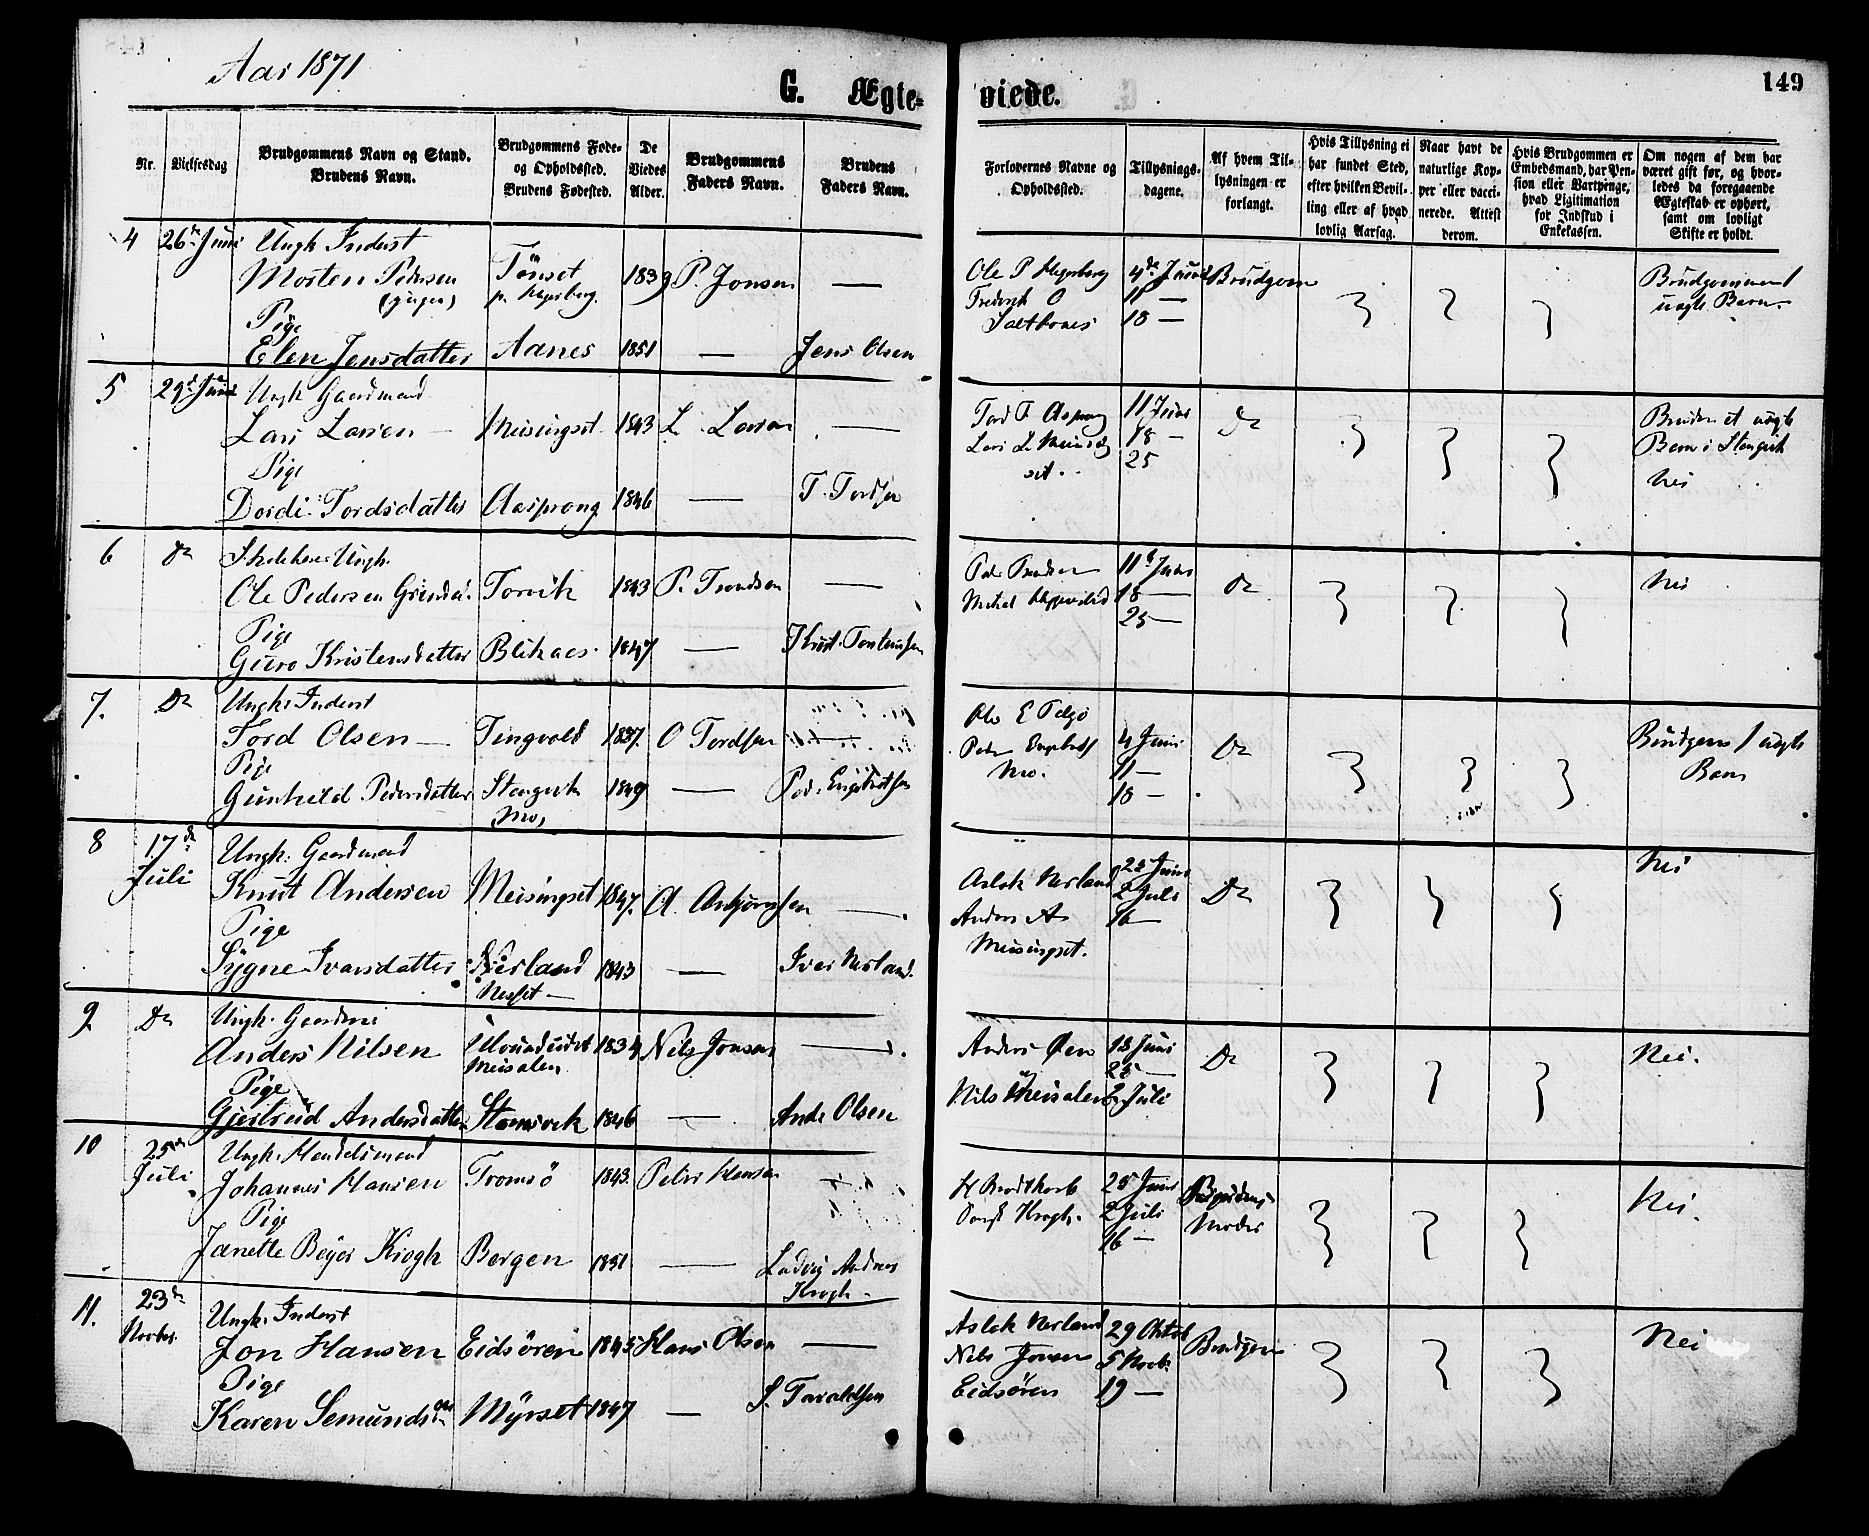 Aar 1871
G. Ægte=
viede.
149
Nr.
Vielsesdag
Brudgommens Navn og Stand.
Brudens Navn.
Brudgommens Føde=
og Opholdssted.
Brudens Fødested.
De
Viedes
Alder.
Brudgommens
Faders Navn.
Brudens
Faders Navn.
Forlovernes Navne og
Opholdssted.
Tillysnings=
dagene.
Af hvem Til=
lysningen er
forlangt.
Hvis Tillysning ei
har fundet Sted,
efter hvilken Bevil=
ling eller af hvad
lovlig Aarsag.
Naar havt de
naturlige Kop=
per eller vacci=
nerede. Attest
derom.
Hvis Brudgommen er
Embedsmand, har Pen=
sion eller Vartpenge,
hvad Ligitimation
for Indskud i
Enkekassen.
Om nogen af dem har
været gift før, og hvor=
ledes da foregaaende
Ægteskab er ophørt,
samt om lovligt
Skifte er holdt.
4 26de Juni Ungk Inderst
Morten Pedersen Tönset 1839 P. Jonsen —
Pige
Elen Jensdatter Aanes 1851 — Jens Olsen
Ole P 4de Juni Brudgom
11 —
18 —
Brudgommen 1
uægte Barn
5 29de Juni Ungk Gaardmand
Lars Larsen — Meisingset 1843 L. Larsen —
Pige
Dordi Tordsdatter Aasprong 1846 — T. Tordsen
Tord T Asprong 11 Juni Do
Lars L Meising 18 —
set 25
Bruden et uægte
Barn i Stangvik
Nei
6 Do Ungk.
Ole Pedersen Torvik 1843 P. Trondsen —
Pige
Guro Kristensdatter Blikaas 1847 —
11te Juni Do
18 —
25 —
Nei
7. Do Ungk. Inderst
Tord Olsen — Tingvold 1837. O Tordsen —
Pige
Gunhild Pedersdatter Stangvik 1849 — Ped. Engebretsen
Mo,
Ole E 4 Juni Do
Peder Engebretsen 11 —
Mo. 18 —
Brudgom 1 uægte
Barn
8 17de Ungk. Gaardmand
Juli Knut Andersen Meisingset 1847. A. —
Pige
Sygne Ivarsdatter Nerland 1843 — Iver Nerland.
Nesset —
Aslak Nerland 25 Juni Do
Anders A 2 Juli
Meisingset. 16 —
Nei
9 Do Ungk. Gaardm
Anders Nilsen 1834 Nils Jonsen —
Meisalen
Pige
Gjertrud Andersdatter 1846 — And. Olsen
Anders Øen 18 Juni Do
25 —
Nils Meisalen 2 Juli
Nei.
10 25de Ungk. Handelsmand
Juli Johannes Hansen Tromsö 1843. Peter Hansen
Pige
Janette Beyer Krogh Bergen 1851 — Ludvig Andreas
Krogh.
25 Juni
2 Juli Moder
16 —
Nei.
11. 23de Ungk. Inderst
Novbr. Jon Hansen Eidsören 1845 Hans Olsen —
Pige
Karen Semundsdatter Myrset 1847 — S. Taraldsen
Aslak Nerland 29 Oktob Brudgom
Nils Jonsen 5 Novb.
Eidsören 19 —
Nei